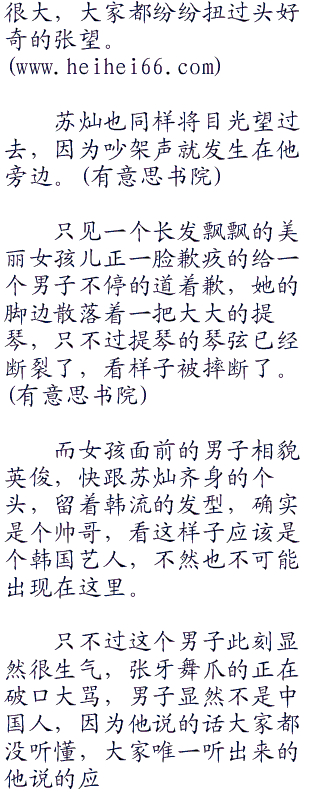 很大，大家都纷纷扭过头好
奇的张望。
(www.heihei66.com)
苏灿也同样将目光望过
去，因为吵架声就发生在他
旁边。(有意思书院)
只见一个长发飘飘的美
丽女孩儿正一脸歉疚的给一
个男子不停的道着歉，她的
脚边散落着一把大大的提
琴，只不过提琴的琴弦已经
断裂了，看样子被摔断了。
(有意思书院)
而女孩面前的男子相貌
英俊，快跟苏灿齐身的个
头，留着韩流的发型，确实
是个帅哥，看这样子应该是
个韩国艺人，不然也不可能
出现在这里。
只不过这个男子此刻显
然很生气，张牙舞爪的正在
破口大骂，男子显然不是中
国人，因为他说的话大家都
没听懂，大家唯一听出来的
他说的应